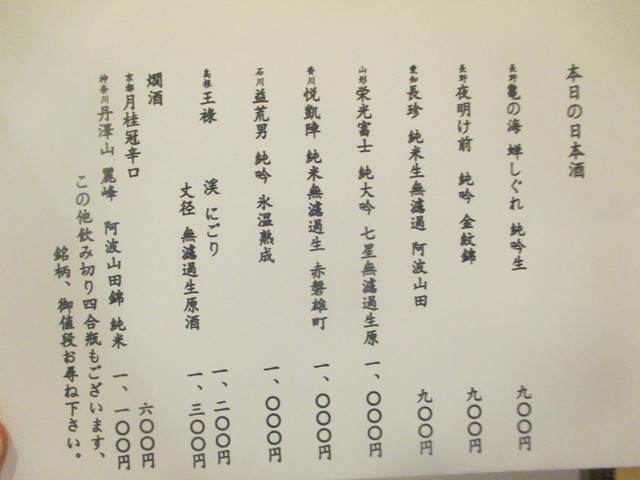 本日の日本酒
長野 亀の海 蝉しぐれ 純吟生 九〇〇円
長野 夜明け前 純吟 金紋錦 九〇〇円
愛知 長珍 純米生無濾過 阿波山田 九〇〇円
山形 栄光冨士 純大吟 七星無濾過生原 一、〇〇〇円
香川 悦凱陣 純米無濾過生 赤磐雄町 一、〇〇〇円
石川 益荒男 純吟 氷温熟成 一、〇〇〇円
島根 王祿 渓 にごり 一、二〇〇円
丈径 無濾過生原酒 一、三〇〇円
燗酒
京都 月桂冠辛口 六〇〇円
神奈川 丹澤山 麗峰 阿波山田錦 純米 一、一〇〇円
この他飲み切り四合瓶もございます、
銘柄、御値段お尋ね下さい。